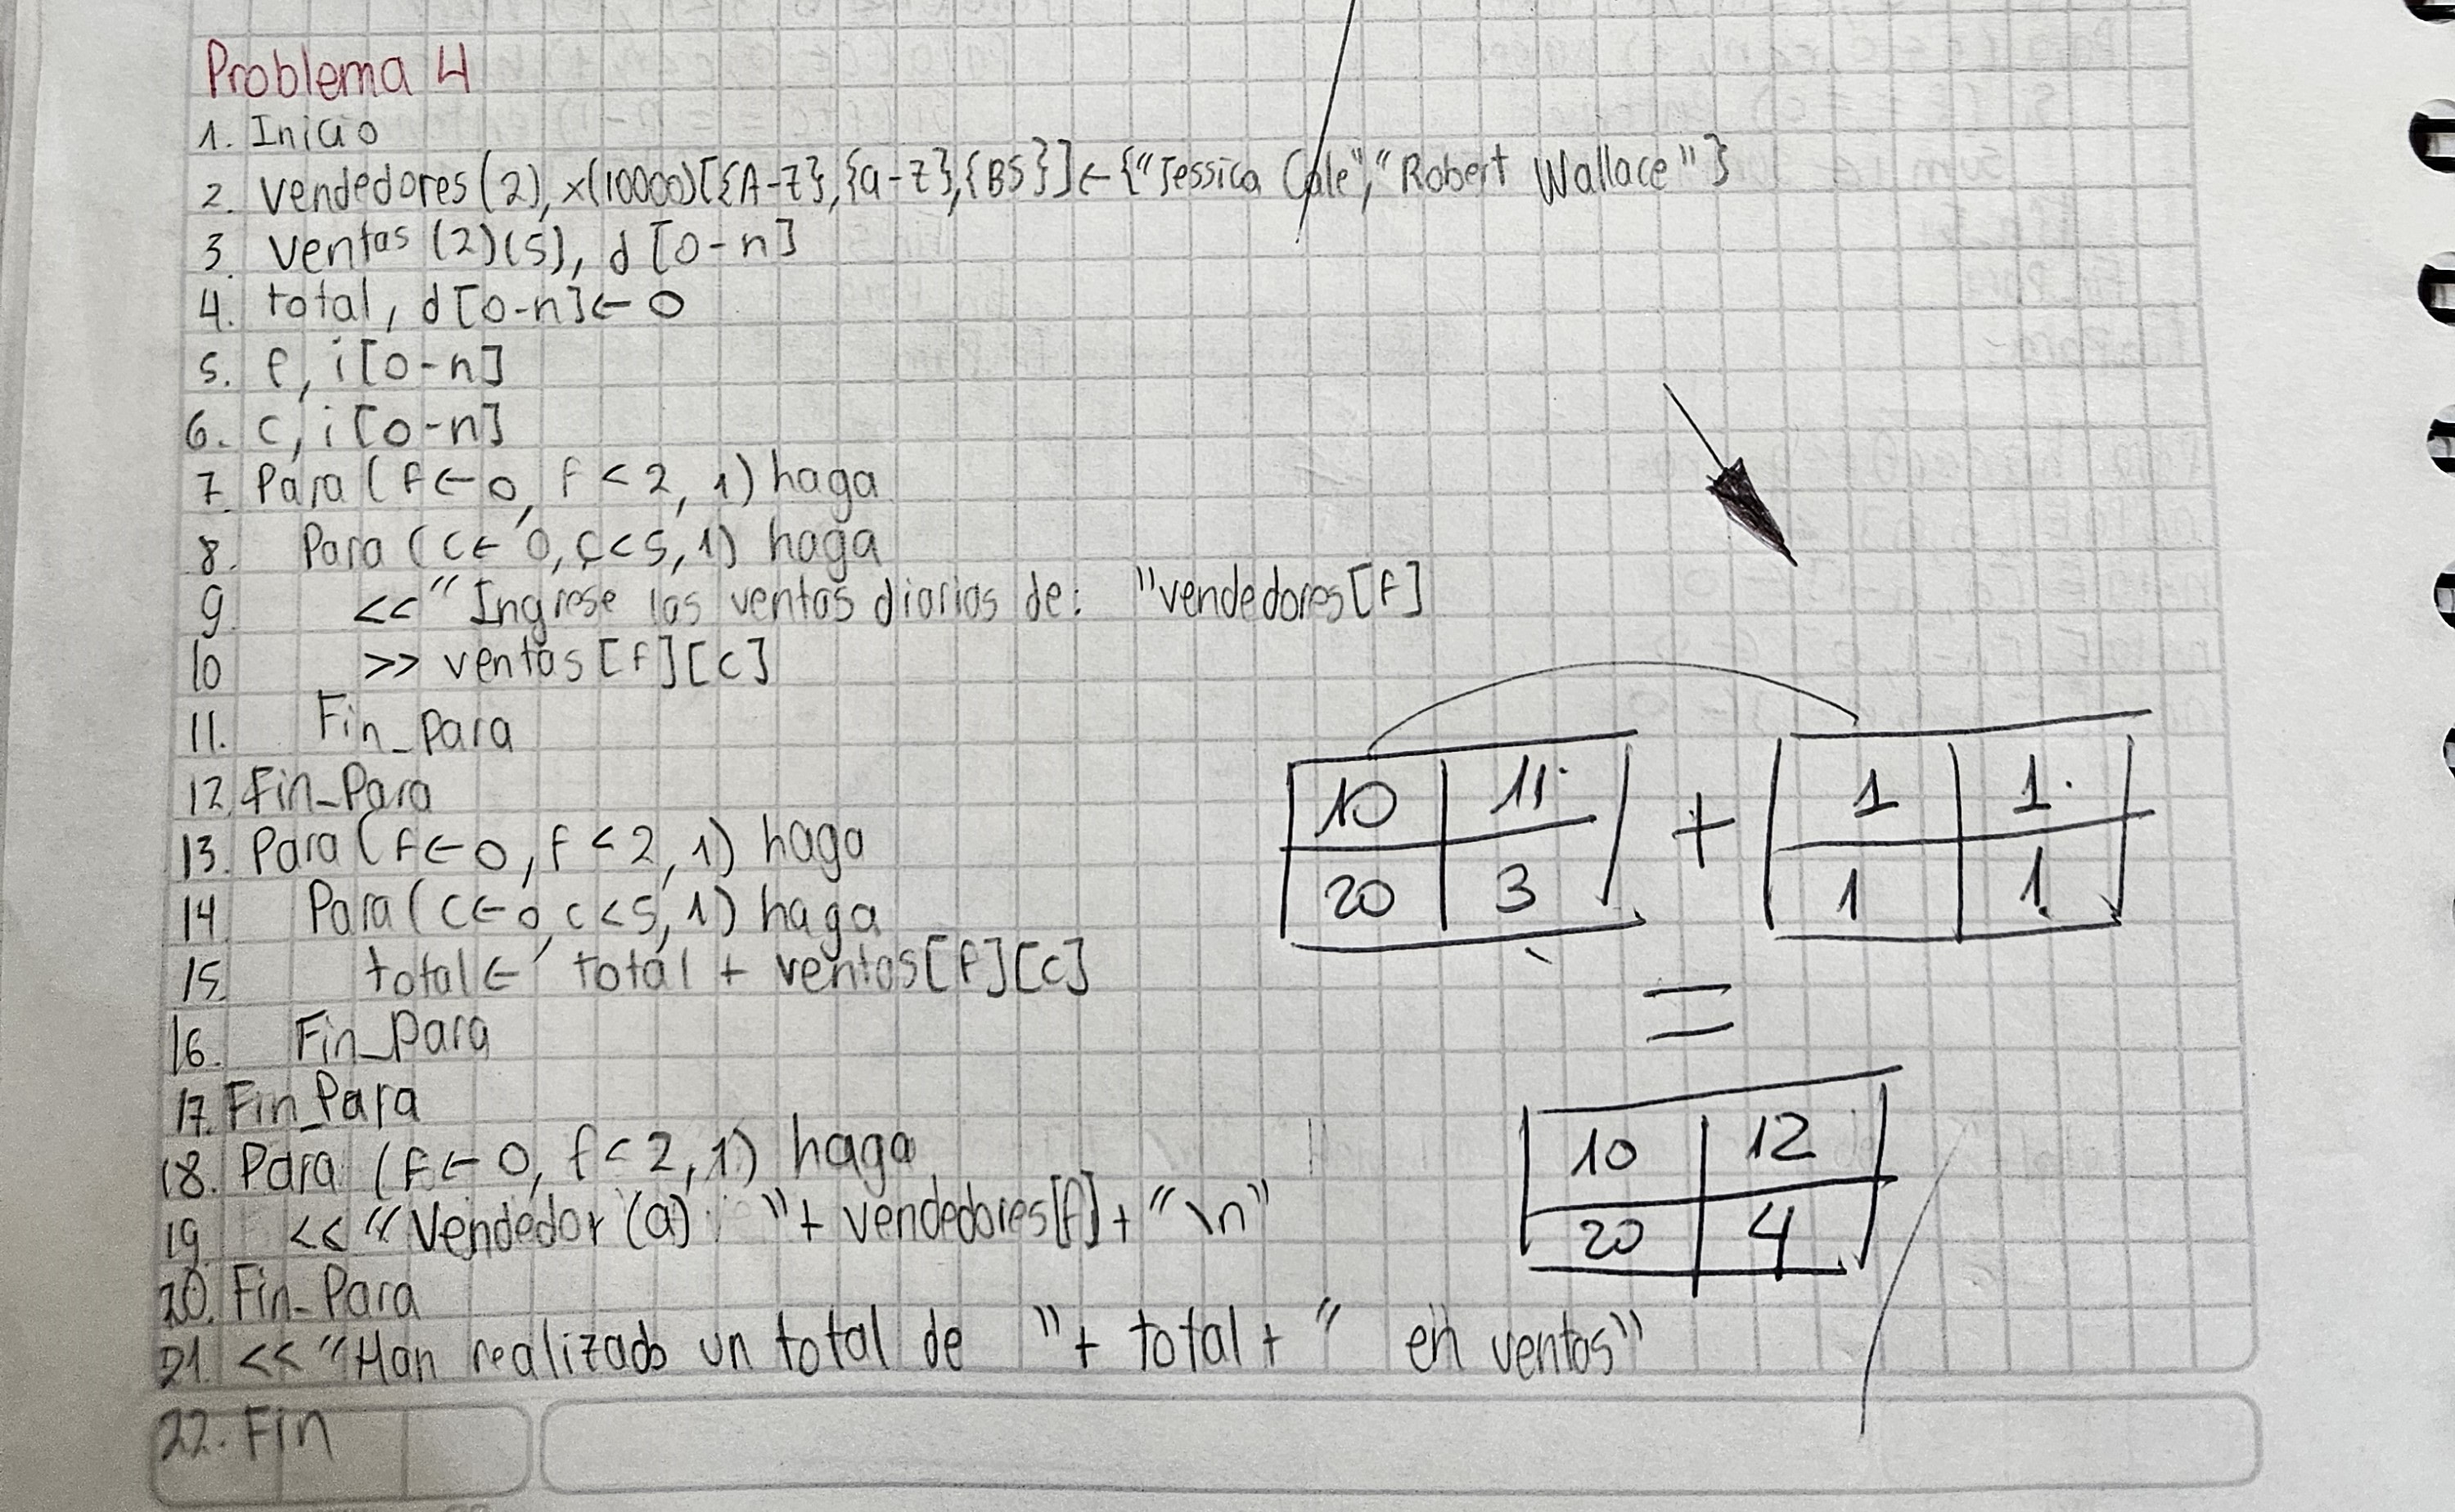 Problema 4
1. Inicio
2. Vendedores(2), x(10000)[{A-Z},{a-z},{BS}]←{"Jessica Cale","Robert Wallace"}
3. Ventas (2)(5), d [0-n]
4. total, d[0-n]← 0
5. f, i[0-n]
6. c, i[0-n]
7. Para (f←0, f<2, 1) haga
8. Para (c← 0, c<5, 1) haga
9 << "Ingrese las ventas diarias de: "vendedores[f]
10 >> ventas[f][c]
11. Fin_Para
12. Fin_Para
13. Para (f←0, f<2, 1) haga
14 Para (c←0, c<5, 1) haga
15. total← total + ventas[f][c]
16. Fin_Para
17. Fin_Para
18. Para (f←0, f<2, 1) haga
19 << "Vendedor (a) "+ vendedores[f]+ "\n"
20. Fin_Para
21. << "Han realizado un total de "+ total + " en ventas"
22. Fin
10 11 + 1 1
20 3 1 1
=
10 12
20 4